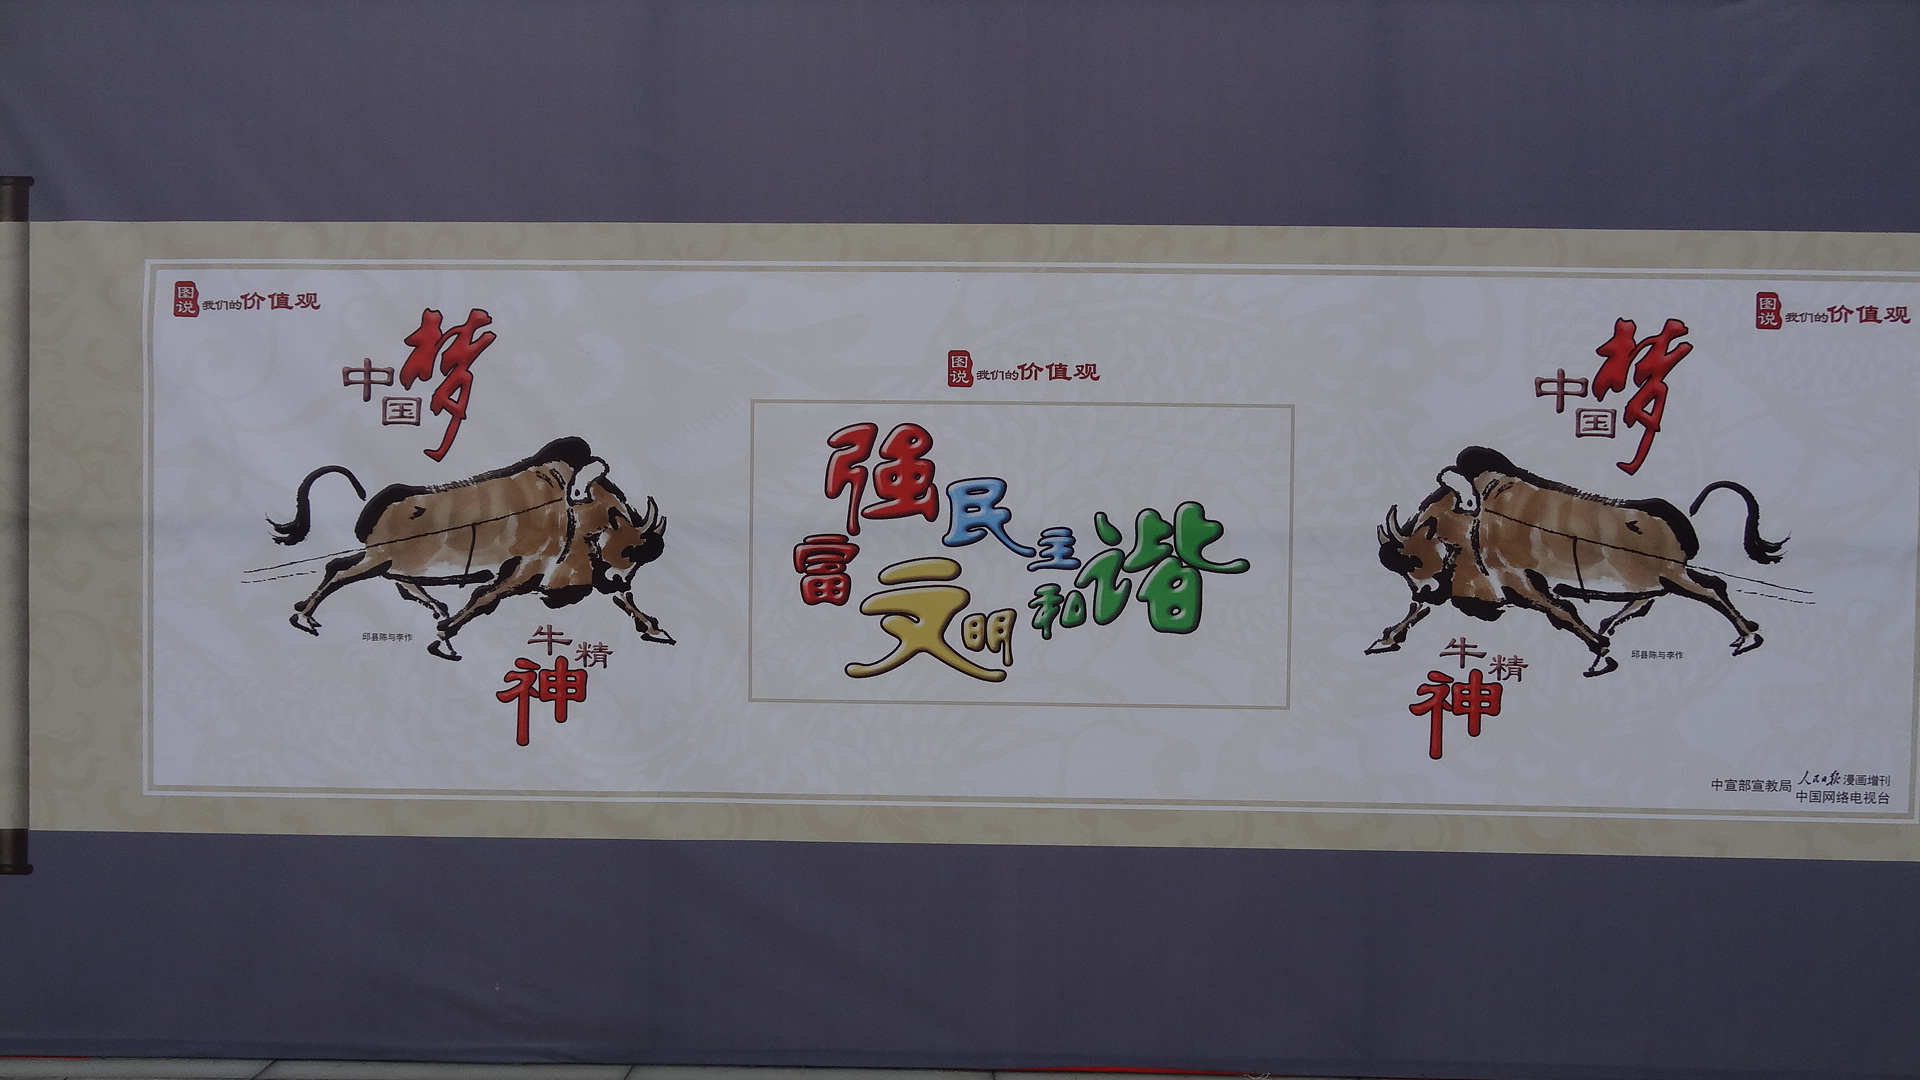 图说 我们的价值观
中国梦
邱县陈与李作
牛精神
图说 我们的价值观
富强民主
文明和谐
图说 我们的价值观
中国梦
邱县陈与李作
牛精神
中宣部宣教局 人民日报漫画增刊
中国网络电视台